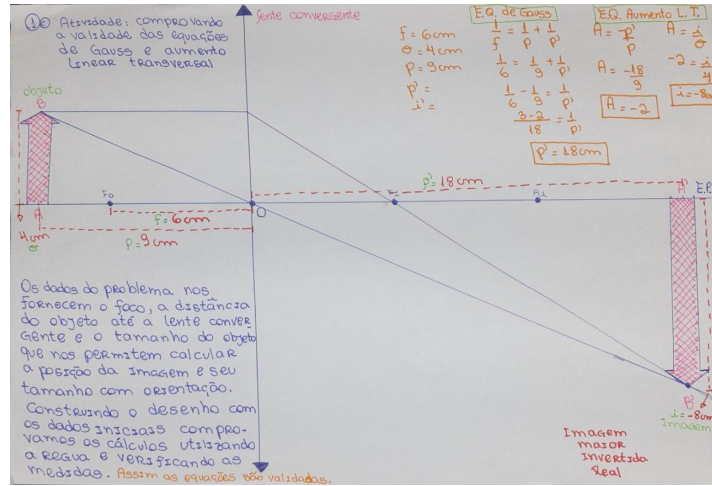 1º Atividade: comprovando
a validade das equações
de Gauss e aumento
Linear transversal
lente convergente
f = 6cm
o = 4cm
p = 9cm
p' =
i' =
E.Q. de Gauss
1/f = 1/p + 1/p'
1/6 = 1/9 + 1/p'
1/6 - 1/9 = 1/p'
3-2/18 = 1/p'
p' = 18cm
E.Q. Aumento L.T.
A = -p'/p
A = -18/9
A = -2
A = i/o
-2 = i/4
i = -8c
objeto
B
A
4cm
o
Fo
f = 6cm
p = 9cm
O
p' = 18cm
Fi
Ai
A'
E.P.
B'
i = -8cm
Imagem
Os dados do problema nos
fornecem o foco, a distância
do objeto até a lente conver
gente e o tamanho do objeto
que nos permitem calcular
a posição da imagem e seu
tamanho com orientação.
Construindo o desenho com
os dados iniciais compro-
vamos os cálculos utilizando
a regua e verificando as
medidas. Assim as equações são validadas.
Imagem
maior
invertida
Real